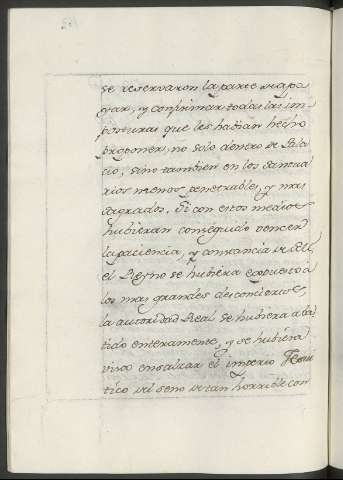 se reservaron la parte de apo
yar, y confirmar todas las im
posturas que les habian hecho
proponer, no solo dentro de Pala
cio, sino tambien en los Santua
rios menos penetrables, y mas
sagrados. Si con estos medios
hubieran conseguido vencer
la paciencia, y constancia de
el Reyno se hubiera expuesto à
los mas grandes desconciertos,
la autoridad Real se hubiera aba
tido enteramente, y se hubiera
visto ensalzar el imperio Jesui
tico del seno de tan horrible con